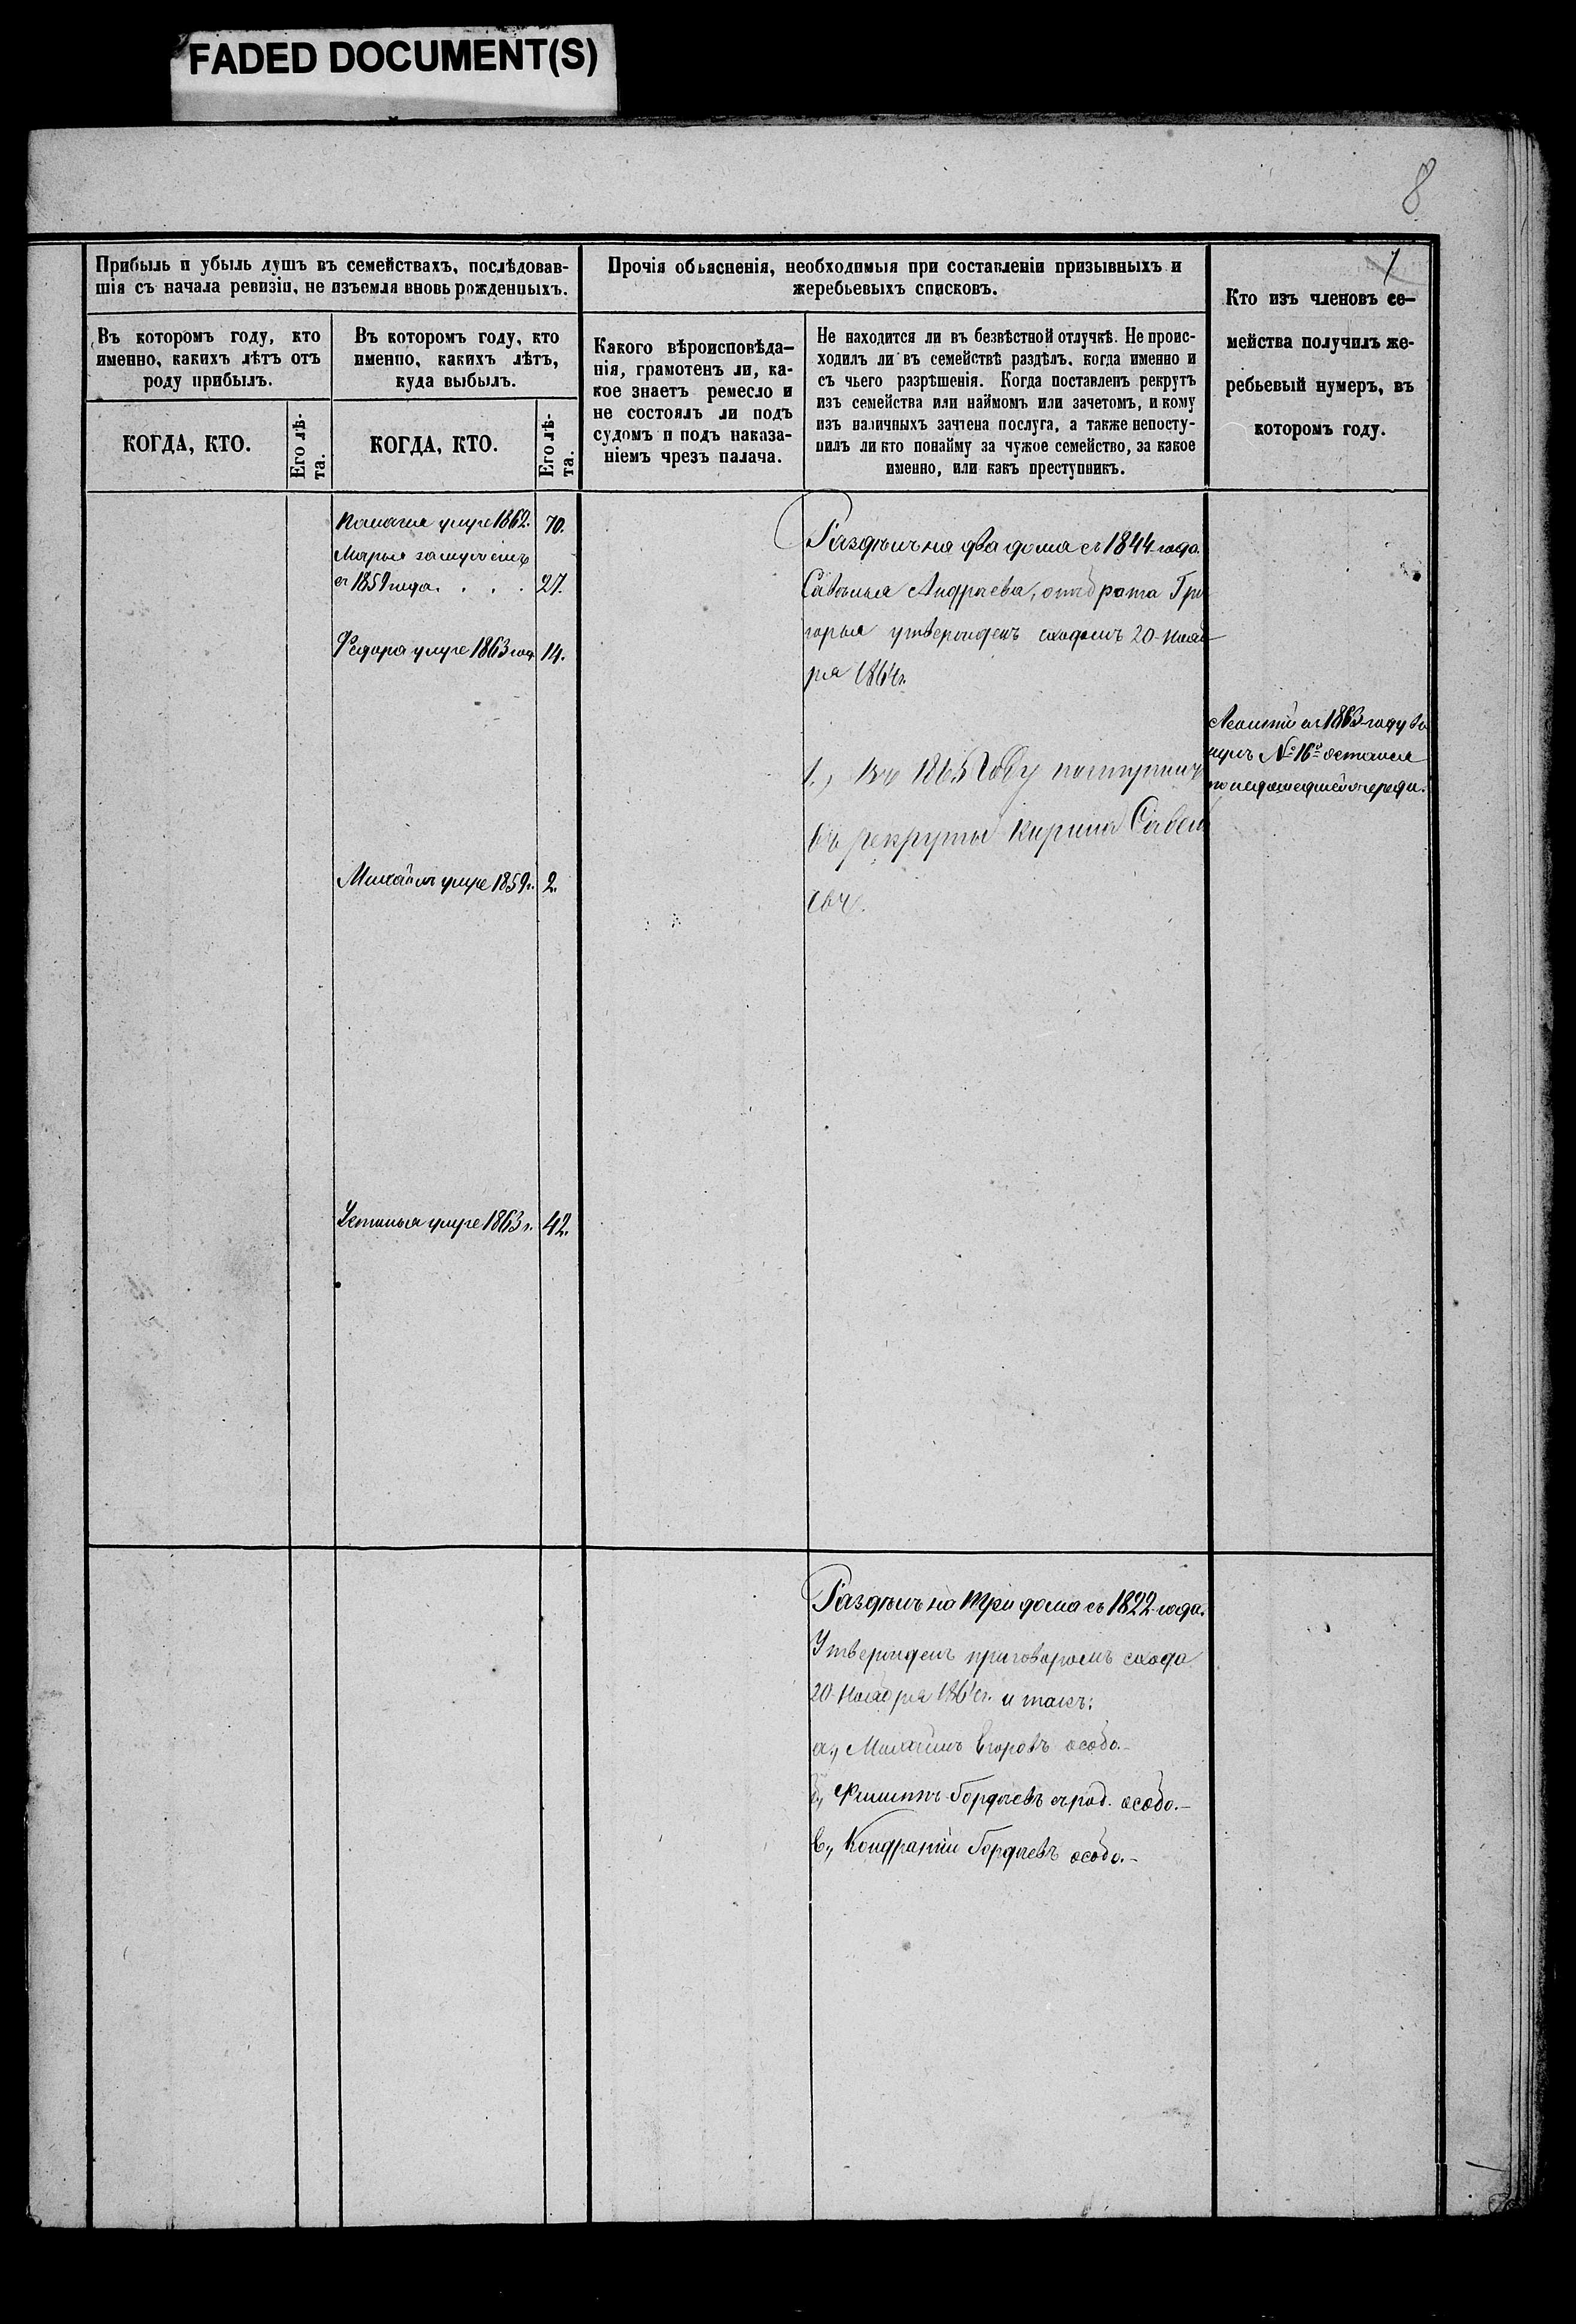 FADED DOCUMENT(S)
8
7
Прибыль и убыль душъ въ семействахъ, послѣдовав-
шія съ начала ревизіи, не изъемля вновь рожденныхъ.
Въ которомъ году, кто
именно, какихъ лѣтъ отъ
роду прибылъ.
Въ которомъ году, кто
именно, какихъ лѣтъ,
куда выбылъ.
КОГДА, КТО.
Его лѣ-
та.
КОГДА, КТО.
Его лѣ-
та.
Прочія объясненія, необходимыя при составленіи призывныхъ и
жеребьевыхъ списковъ.
Какого вѣроисповѣда-
нія, грамотенъ ли, ка-
кое знаетъ ремесло и
не состоялъ ли подъ
судомъ и подъ наказа-
ніемъ чрезъ палача.
Не находится ли въ безвѣстной отлучкѣ. Не проис-
ходилъ ли въ семействѣ раздѣлъ, когда именно и
съ чьего разрѣшенія. Когда поставленъ рекрутъ
изъ семейства или наймомъ или зачетомъ, и кому
изъ наличныхъ зачтена послуга, а также непосту-
пилъ ли кто понайму за чужое семейство, за какое
именно, или какъ преступникъ.
Кто изъ членовъ се-
мейства получилъ же-
ребьевый нумеръ, въ
которомъ году.
умре 1862. 70.
Марья замужемъ
съ 1859 года. . . . 27.
Федора умре 1863 года 14.
Михаилъ умре 1859г. 2.
Устинья умре 1863г. 42.
Раздѣлъ на два дома съ 1844 года.
Савелья Андреева, отъ брата Гри
горья утвержденъ сходомъ 20 Нояб
ря 1864г.
1., Въ 1865 Году поступилъ
въ рекруты Кирила Савель
евъ.
Леонтій въ 1863 году
№ 16й остался
по недошедшей очереди.
Раздѣлъ на три дома съ 1822 года.
Утвержденъ приговоромъ схода
20 Ноября 1864г. и такъ:
а., Михаилъ Егоровъ особо.—
б., Филиппъ Гордѣевъ особо.—
в., Кондратій Гордѣевъ особо.—